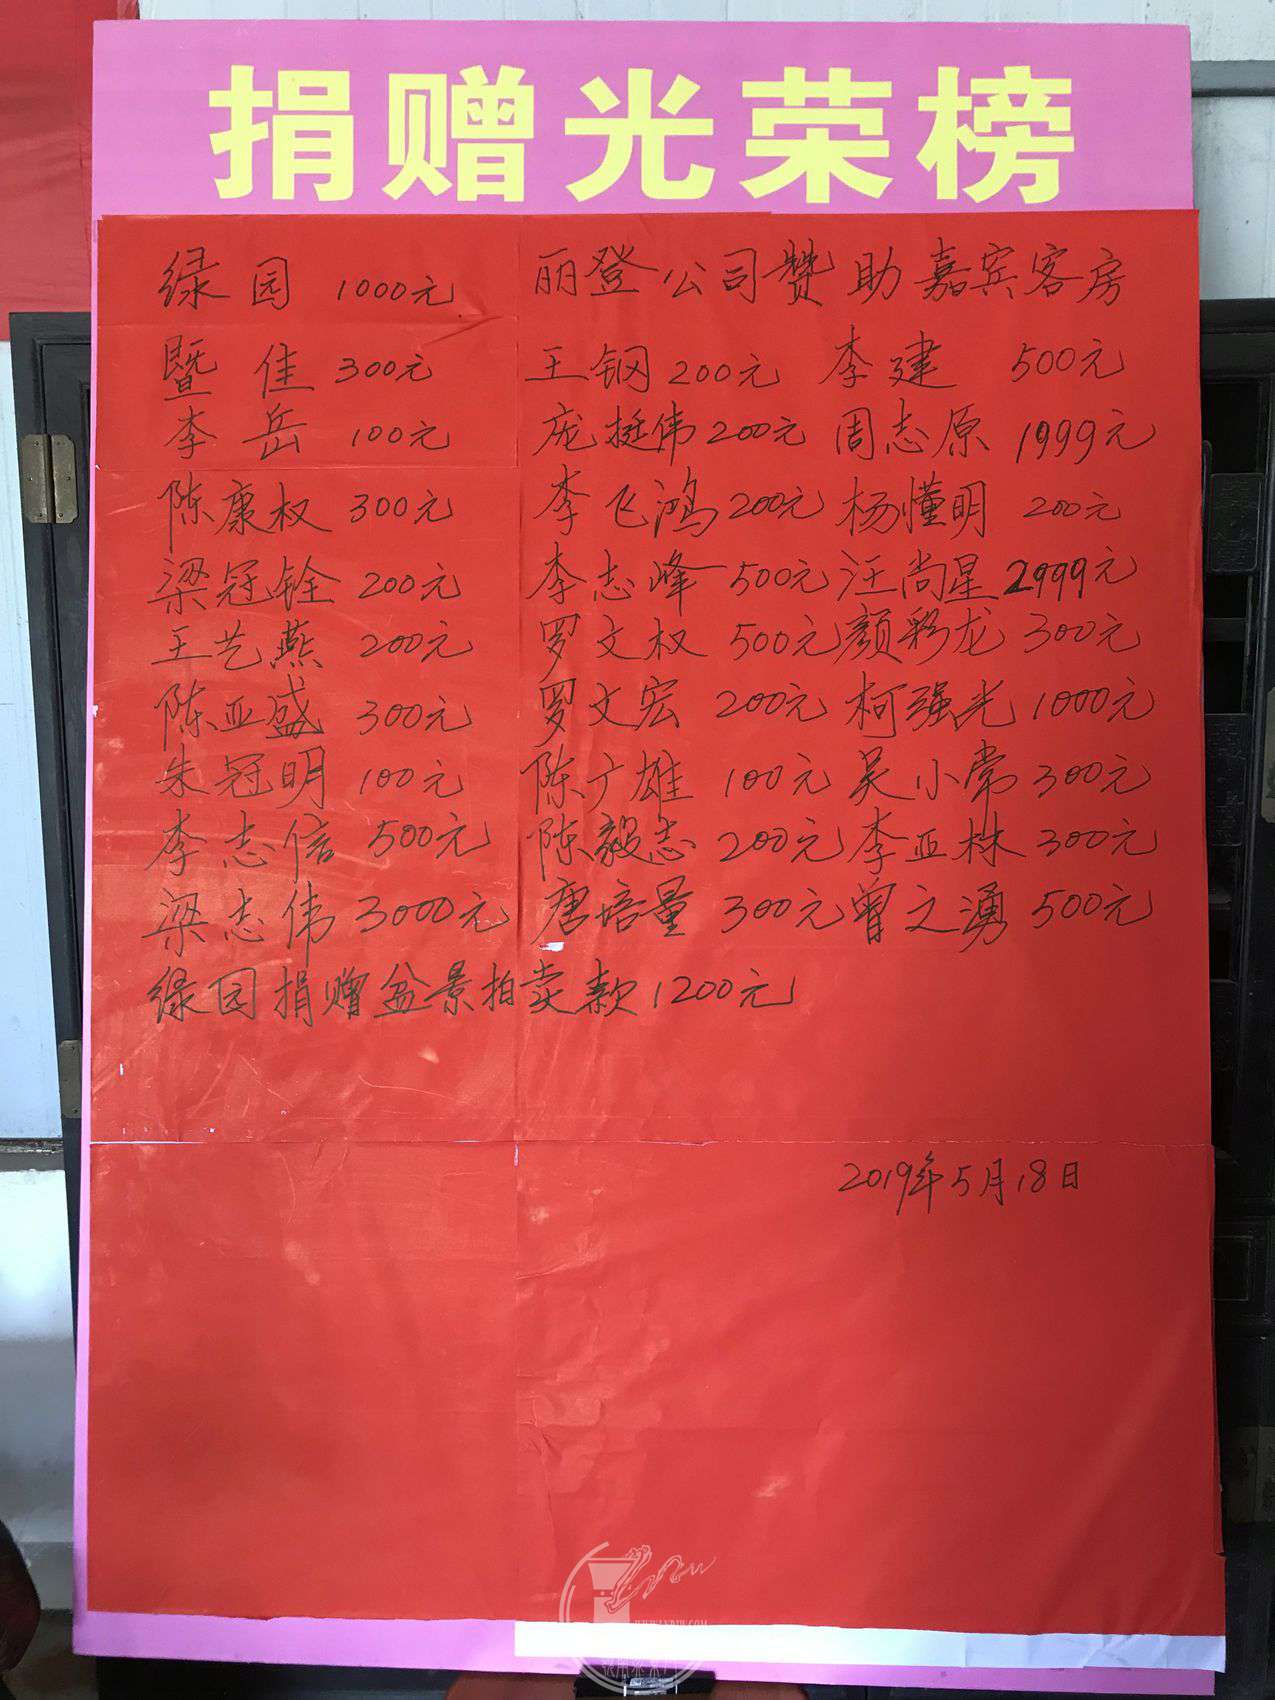 捐赠光荣榜
绿园 1000元 丽登公司赞助嘉宾客房
暨佳 300元 王钢 200元 李建 500元
李岳 100元 庞挺伟 200元 周志原 1999元
陈康权 300元 李飞鸿 200元 杨懂明 200元
梁冠铨 200元 李志峰 500元 汪尚星 2999元
王艺燕 200元 罗文权 500元 颜彩龙 300元
陈亚盛 300元 罗文宏 200元 柯强光 1000元
朱冠明 100元 陈广雄 100元 吴小常 300元
李志信 500元 陈毅志 200元 李亚林 300元
梁志伟 3000元 唐培量 300元 曾之湧 500元
绿园捐赠盆景拍卖款 1200元
2019年5月18日